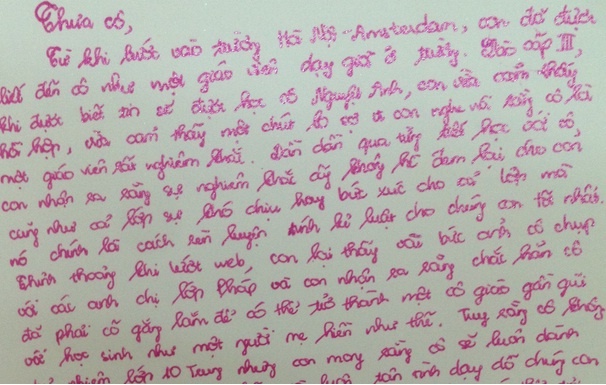 Thưa cô,
Từ khi bước vào trường Hà Nội-Amsterdam, con đã được
biết đến cô như một giáo viên dạy giỏi ở trường. Vào cấp III,
khi được biết tin sẽ được học cô Nguyệt Anh, con vừa cảm thấy
hồi hộp, vừa cảm thấy một chút lo sợ vì con nghe nói rằng cô là
một giáo viên rất nghiêm khắc. Dần dần qua từng tiết học với cô,
con nhận ra rằng sự nghiêm khắc ấy không hề đem lại cho con
cũng như cả lớp sự khó chịu hay bức xúc cho cả lớp mà
nó chính là cách rèn luyện tính kỉ luật cho chúng con tốt nhất.
Thỉnh thoảng khi lướt web, con lại thấy vài bức ảnh cô chụp
với các anh chị lớp Pháp và con nhận ra rằng chắc hẳn cô
đã phải cố gắng lắm để có thể trở thành một cô giáo gần gũi
với học sinh như một người mẹ hiền như thế. Tuy rằng cô không
nhiệm lớp 10 Trung nhưng con mong rằng cô sẽ luôn dành
luôn tận tình dạy dỗ chúng con